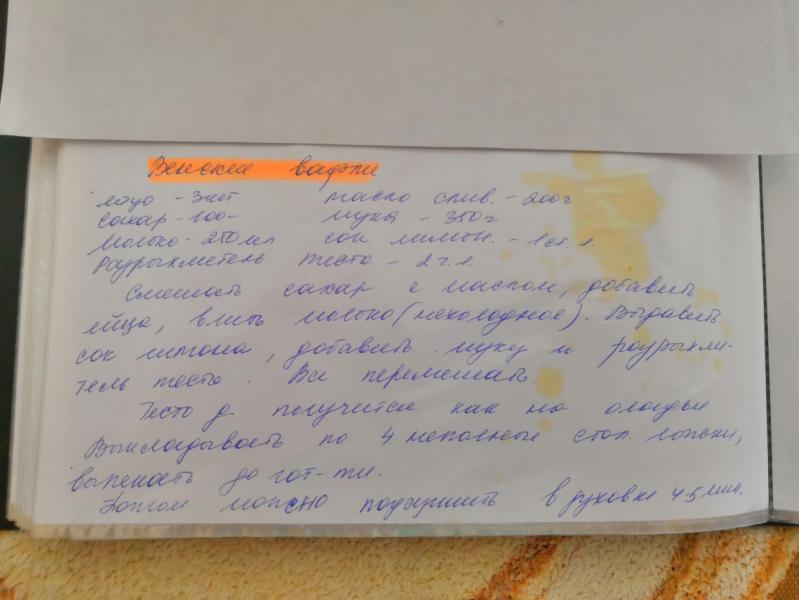 Венские вафли
яйцо - 3 шт масло слив. - 200 г
сахар - 100 - мука - 350 г
молоко - 250 мл сок лимон. - 1 ст. л.
разрыхлитель теста - 2 ч. л.
Смешать сахар с маслом, добавить
яйца, влить молоко (нехолодное). Выдавить
сок лимона, добавить муку и разрыхли-
тель теста. Все перемешать.
Тесто д. получится как на оладьи.
Выкладывать по 4 неполные стол. ложки,
выпекать до гот-ти.
Потом можно подсушить в духовке 45 мин.